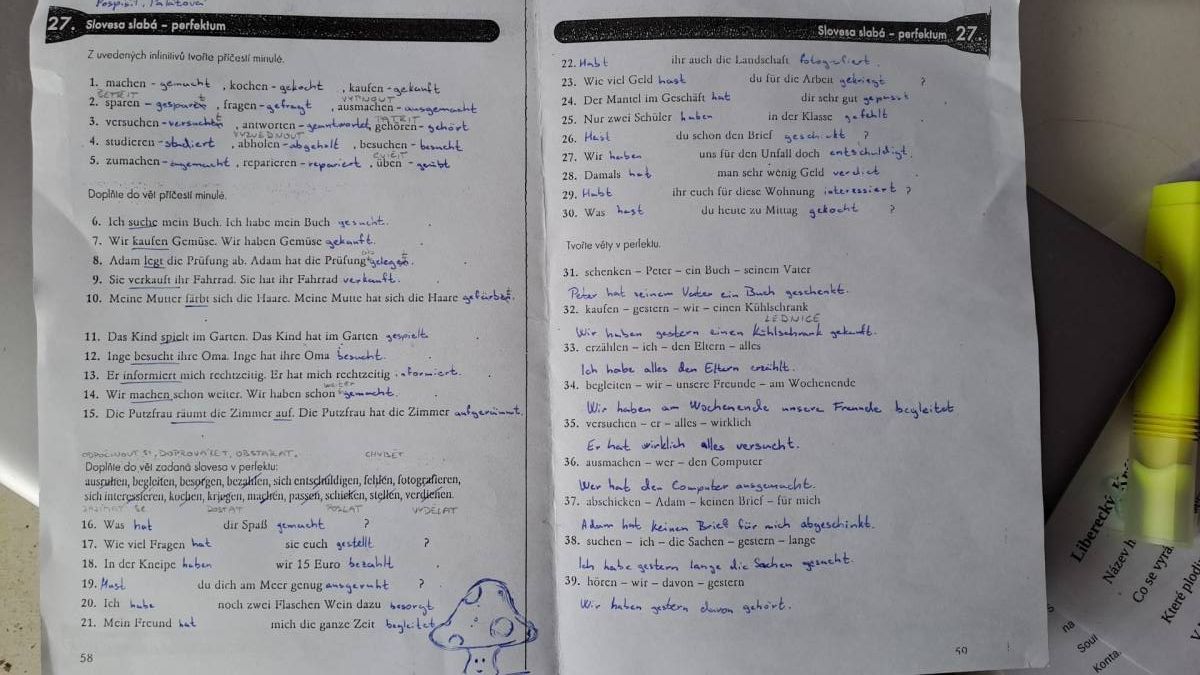 Pospíšil, Palatová
27. Slovesa slabá – perfektum
Z uvedených infinitivů tvořte příčestí minulé.
1. machen - gemacht , kochen - gekocht , kaufen - gekauft
ŠETŘIT VYPNOUT
2. sparen - gespart , fragen - gefragt , ausmachen - ausgemacht
PATŘIT
3. versuchen - versucht , antworten - geantwortet, gehören - gehört
VYZVEDNOUT
4. studieren - studiert , abholen - abgeholt , besuchen - besucht
CVIČIT
5. zumachen - zugemacht , reparieren - repariert , üben - geübt
Doplňte do vět příčestí minulé.
6. Ich suche mein Buch. Ich habe mein Buch gesucht.
7. Wir kaufen Gemüse. Wir haben Gemüse gekauft.
8. Adam legt die Prüfung ab. Adam hat die Prüfung abgelegt.
9. Sie verkauft ihr Fahrrad. Sie hat ihr Fahrrad verkauft.
10. Meine Mutter färbt sich die Haare. Meine Mutte hat sich die Haare gefärbt.
11. Das Kind spielt im Garten. Das Kind hat im Garten gespielt.
12. Inge besucht ihre Oma. Inge hat ihre Oma besucht.
13. Er informiert mich rechtzeitig. Er hat mich rechtzeitig informiert.
14. Wir machen schon weiter. Wir haben schon weiter gemacht.
15. Die Putzfrau räumt die Zimmer auf. Die Putzfrau hat die Zimmer aufgeräumt.
ODPOČINOUT SI, DOPROVÁZET, OBSTARAT, CHYBĚT
Doplňte do vět zadaná slovesa v perfektu:
ausruhen, begleiten, besorgen, bezahlen, sich entschuldigen, fehlen, fotografieren,
sich interessieren, kochen, kriegen, machen, passen, schicken, stellen, verdienen.
ZAJÍMAT SE DOSTAT POSLAT VYDĚLAT
16. Was hat dir Spaß gemacht ?
17. Wie viel Fragen hat sie euch gestellt ?
18. In der Kneipe haben wir 15 Euro bezahlt
19. Hast du dich am Meer genug ausgeruht ?
20. Ich habe noch zwei Flaschen Wein dazu besorgt
21. Mein Freund hat mich die ganze Zeit begleitet
58
Slovesa slabá – perfektum 27.
22. Habt ihr auch die Landschaft fotografiert.
23. Wie viel Geld hast du für die Arbeit gekriegt ?
24. Der Mantel im Geschäft hat dir sehr gut gepasst
25. Nur zwei Schüler haben in der Klasse gefehlt
26. Hast du schon den Brief geschickt ?
27. Wir haben uns für den Unfall doch entschuldigt.
28. Damals hat man sehr wenig Geld verdict
29. Habt ihr euch für diese Wohnung interessiert ?
30. Was hast du heute zu Mittag gekocht ?
Tvořte věty v perfektu.
31. schenken – Peter – ein Buch – seinem Vater
Peter hat seinem Vater ein Buch geschenkt.
32. kaufen – gestern – wir – einen Kühlschrank
LEDNICE
Wir haben gestern einen Kühlschrank gekauft.
33. erzählen – ich – den Eltern – alles
Ich habe alles den Eltern erzählt.
34. begleiten – wir – unsere Freunde – am Wochenende
Wir haben am Wochenende unsere Freunde begleitet
35. versuchen – er – alles – wirklich
Er hat wirklich alles versucht.
36. ausmachen – wer – den Computer
Wer hat den Computer ausgemacht.
37. abschicken – Adam – keinen Brief – für mich
Adam hat keinen Brief für mich abgeschinkt.
38. suchen – ich – die Sachen – gestern – lange
Ich habe gestern lange die Sachen gesucht.
39. hören – wir – davon – gestern
Wir haben gestern davon gehört.
59
Liberecký
Název
Co se vyra
Které
na
Sour
Konta